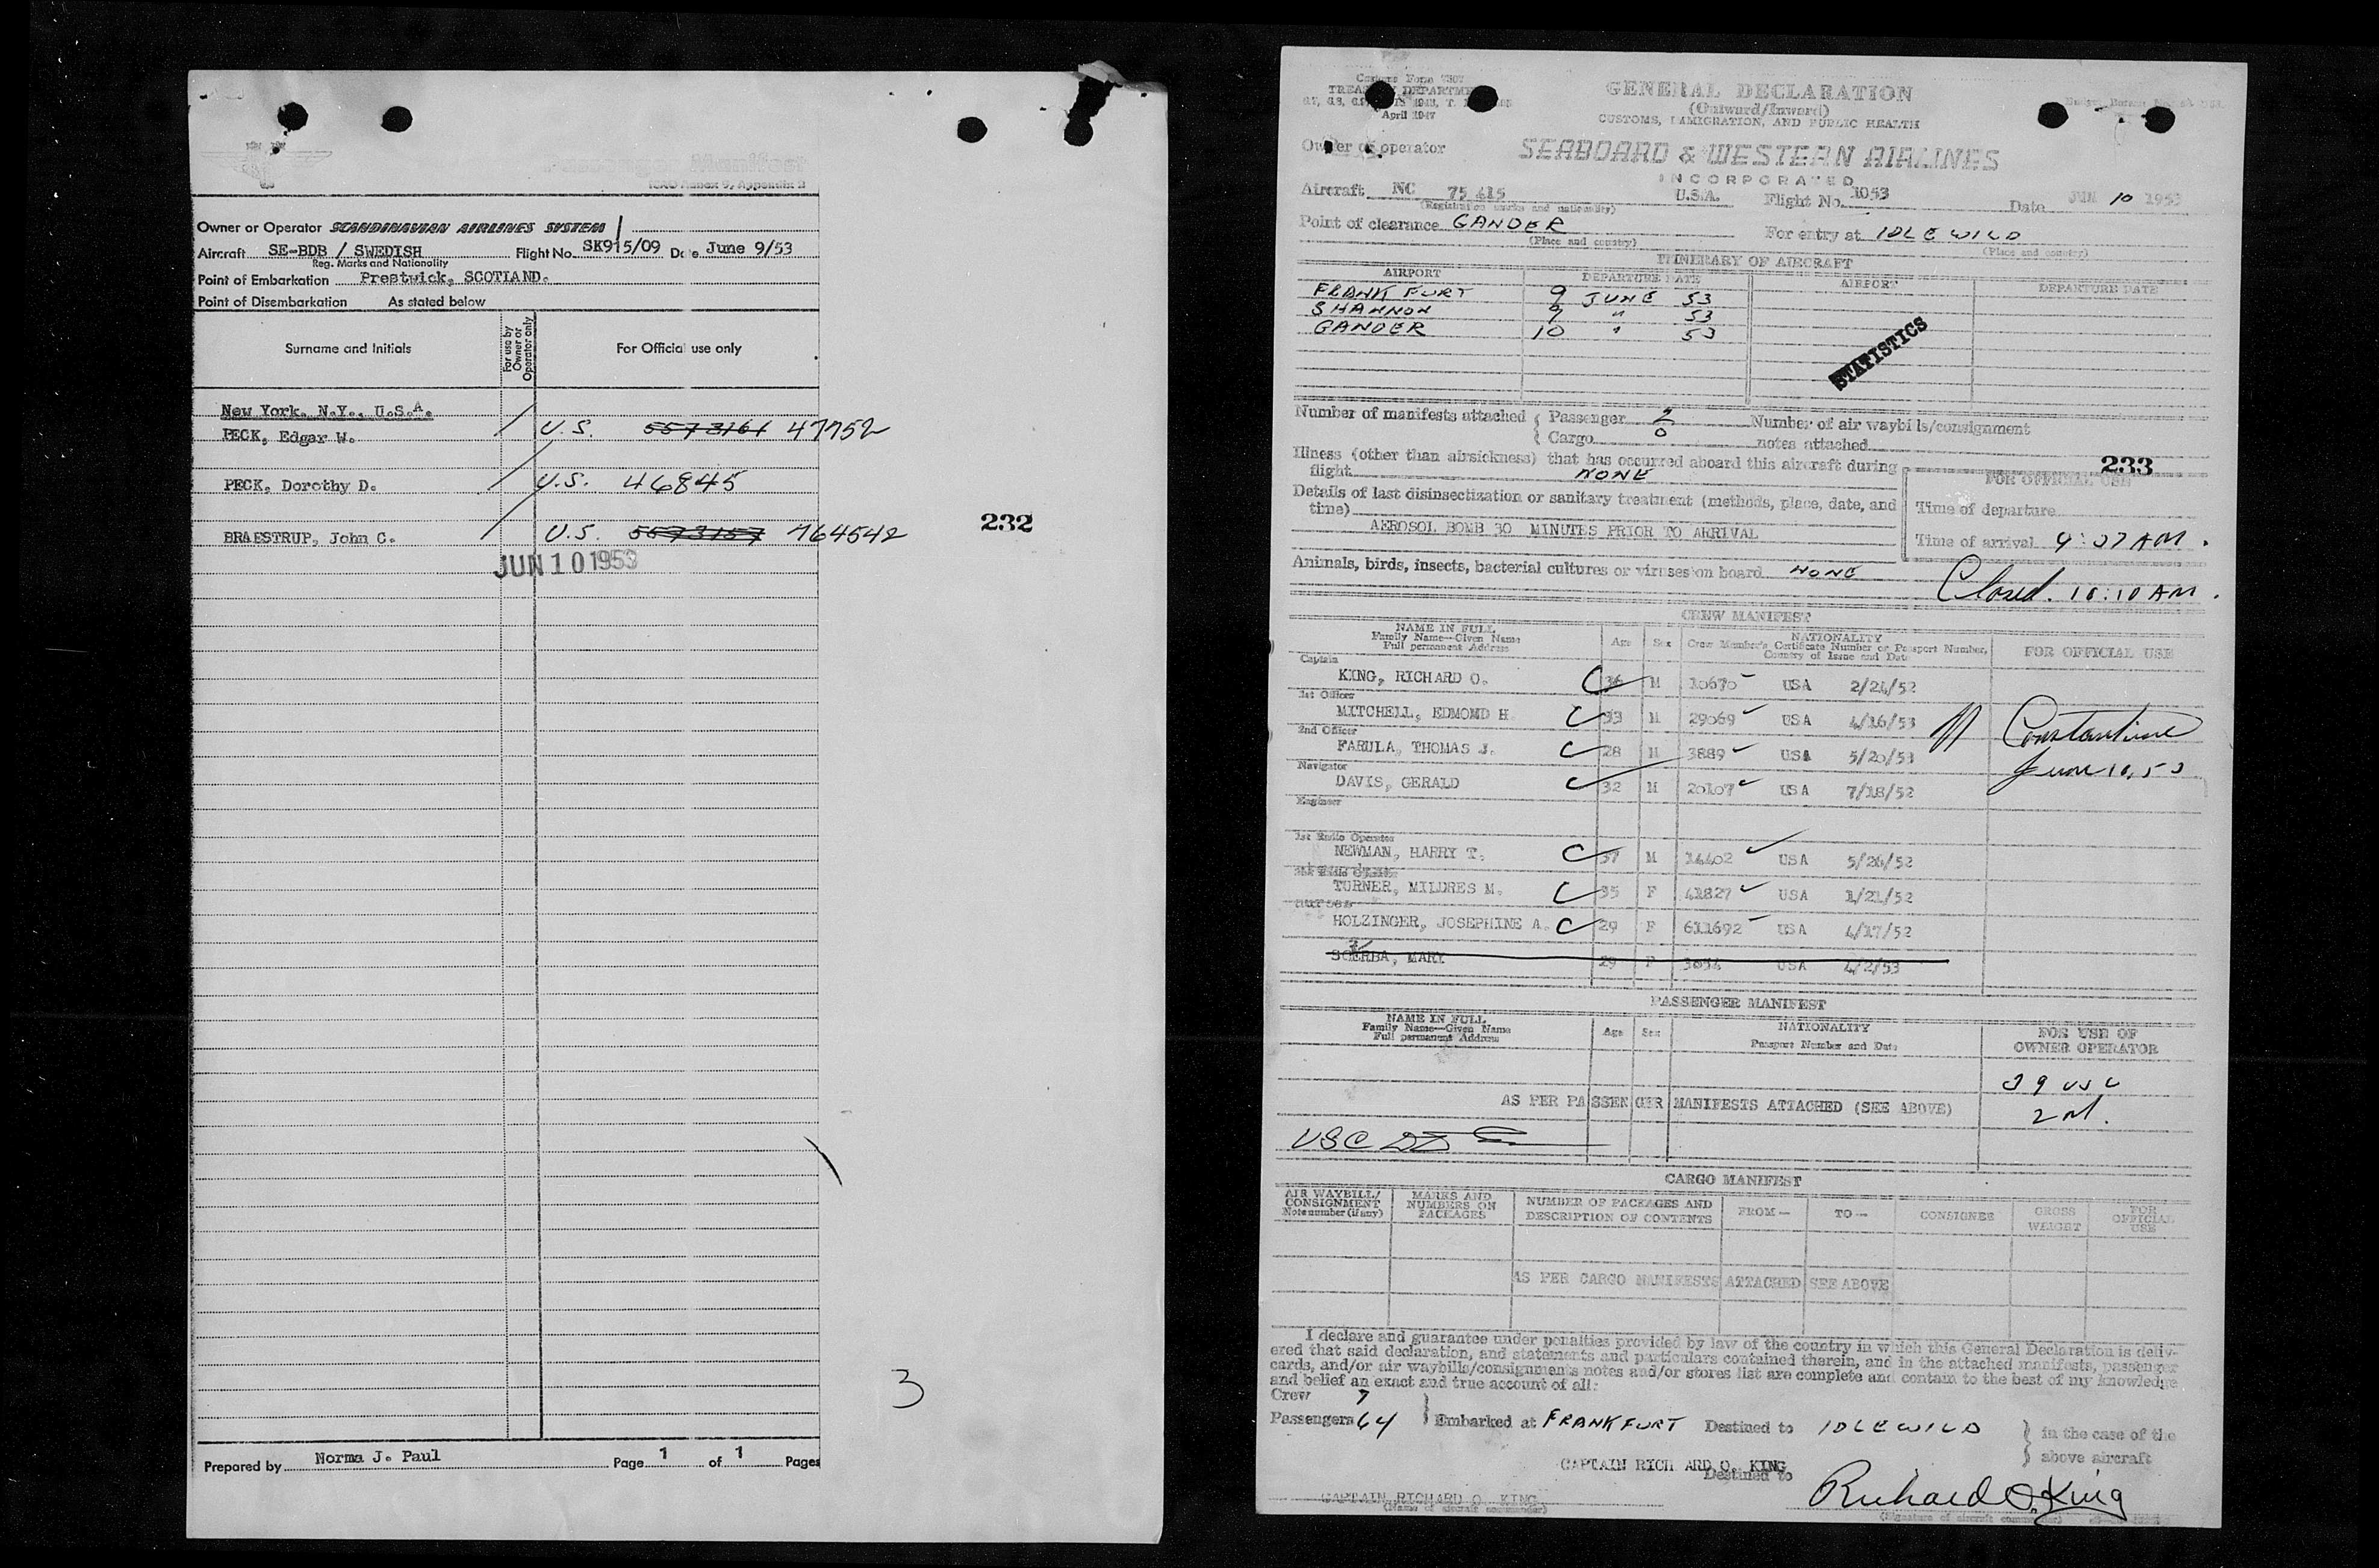 ICAO Annex 9, Appendix 2
Owner or Operator SCANDINAVIAN AIRLINES SYSTEM
Aircraft SE-BDB / SWEDISH Flight No. SK915/09 Date June 9/53
Reg. Marks and Nationality
Point of Embarkation Prestwick, SCOTLAND.
Point of Disembarkation As stated below
Surname and Initials
For use by Owner or Operator only
For Official use only
New York, N.Y., U.S.A.
PECK, Edgar W. U.S. 5573161 47752
PECK, Dorothy D. U.S. 46845
BRAESTRUP, John C. U.S. 5573157 764542
JUN 10 1953
232
3
Prepared by Norma J. Paul Page 1 of 1 Pages
Customs Form 7507
TREASURY DEPARTMENT
April 1947
GENERAL DECLARATION
(Outward/Inward)
CUSTOMS, IMMIGRATION, AND PUBLIC HEALTH
Owner or operator SEABOARD & WESTERN AIRLINES
INCORPORATED
Aircraft NC 75415 U.S.A. Flight No. 1053 Date JUN 10 1953
(Registration marks and nationality)
Point of clearance GANDER For entry at IDLEWILD
(Place and country) (Place and country)
ITINERARY OF AIRCRAFT
AIRPORT DEPARTURE DATE AIRPORT DEPARTURE DATE
FRANKFURT 9 JUNE 53
SHANNON 9 " 53
GANDER 10 " 53
STATISTICS
Number of manifests attached { Passenger 2 Number of air waybills/consignment
Cargo 0 notes attached
233
Illness (other than airsickness) that has occurred aboard this aircraft during
flight NONE
FOR OFFICIAL USE
Details of last disinsectization or sanitary treatment (methods, place, date, and
time)
Time of departure
AEROSOL BOMB 30 MINUTES PRIOR TO ARRIVAL
Time of arrival 9:07 AM.
Animals, birds, insects, bacterial cultures or viruses on board NONE
Closed. 10:10 AM.
CREW MANIFEST
NAME IN FULL
Family Name—Given Name
Full permanent Address
Age Sex
NATIONALITY
Crew Member's Certificate Number or Passport Number,
Country of Issue and Date
FOR OFFICIAL USE
Captain
KING, RICHARD O. C 36 M 10670 USA 2/24/52
1st Officer
MITCHELL, EDMOMD H. C 33 M 29069 USA 4/16/53
2nd Officer
FARULA, THOMAS J. C 28 M 3889 USA 5/20/53
Constantine
June 10, 53
Navigator
DAVIS, GERALD C 32 M 20107 USA 7/18/52
Engineer
1st Radio Operator
NEWMAN, HARRY T. C 37 M 14402 USA 5/26/52
TURNER, MILDRES M. C 35 F 41827 USA 1/21/52
nurses
HOLZINGER, JOSEPHINE A. C 29 F 611692 USA 4/17/52
SCERBA, MARY 29 F 3854 USA 4/2/53
PASSENGER MANIFEST
NAME IN FULL
Family Name—Given Name
Full permanent Address
Age Sex
NATIONALITY
Passport Number and Date
FOR USE OF
OWNER OPERATOR
39 USC
AS PER PASSENGER MANIFESTS ATTACHED (SEE ABOVE)
2 M.
USC
CARGO MANIFEST
AIR WAYBILL/
CONSIGNMENT
Note number (if any)
MARKS AND
NUMBERS ON
PACKAGES
NUMBER OF PACKAGES AND
DESCRIPTION OF CONTENTS
FROM— TO— CONSIGNEE
GROSS
WEIGHT
FOR
OFFICIAL
USE
AS PER CARGO MANIFESTS ATTACHED SEE ABOVE
I declare and guarantee under penalties provided by law of the country in which this General Declaration is deliv-
ered that said declaration, and statements and particulars contained therein, and in the attached manifests, passenger
cards, and/or air waybills/consignments notes and/or stores list are complete and contain to the best of my knowledge
and belief an exact and true account of all:
Crew 7
Passengers 64 } Embarked at FRANKFURT Destined to IDLEWILD } in the case of the
above aircraft
CAPTAIN RICHARD O. KING
Destined to
CAPTAIN RICHARD O. KING
(Name of aircraft commander)
Richard O. King
(Signature of aircraft commander)